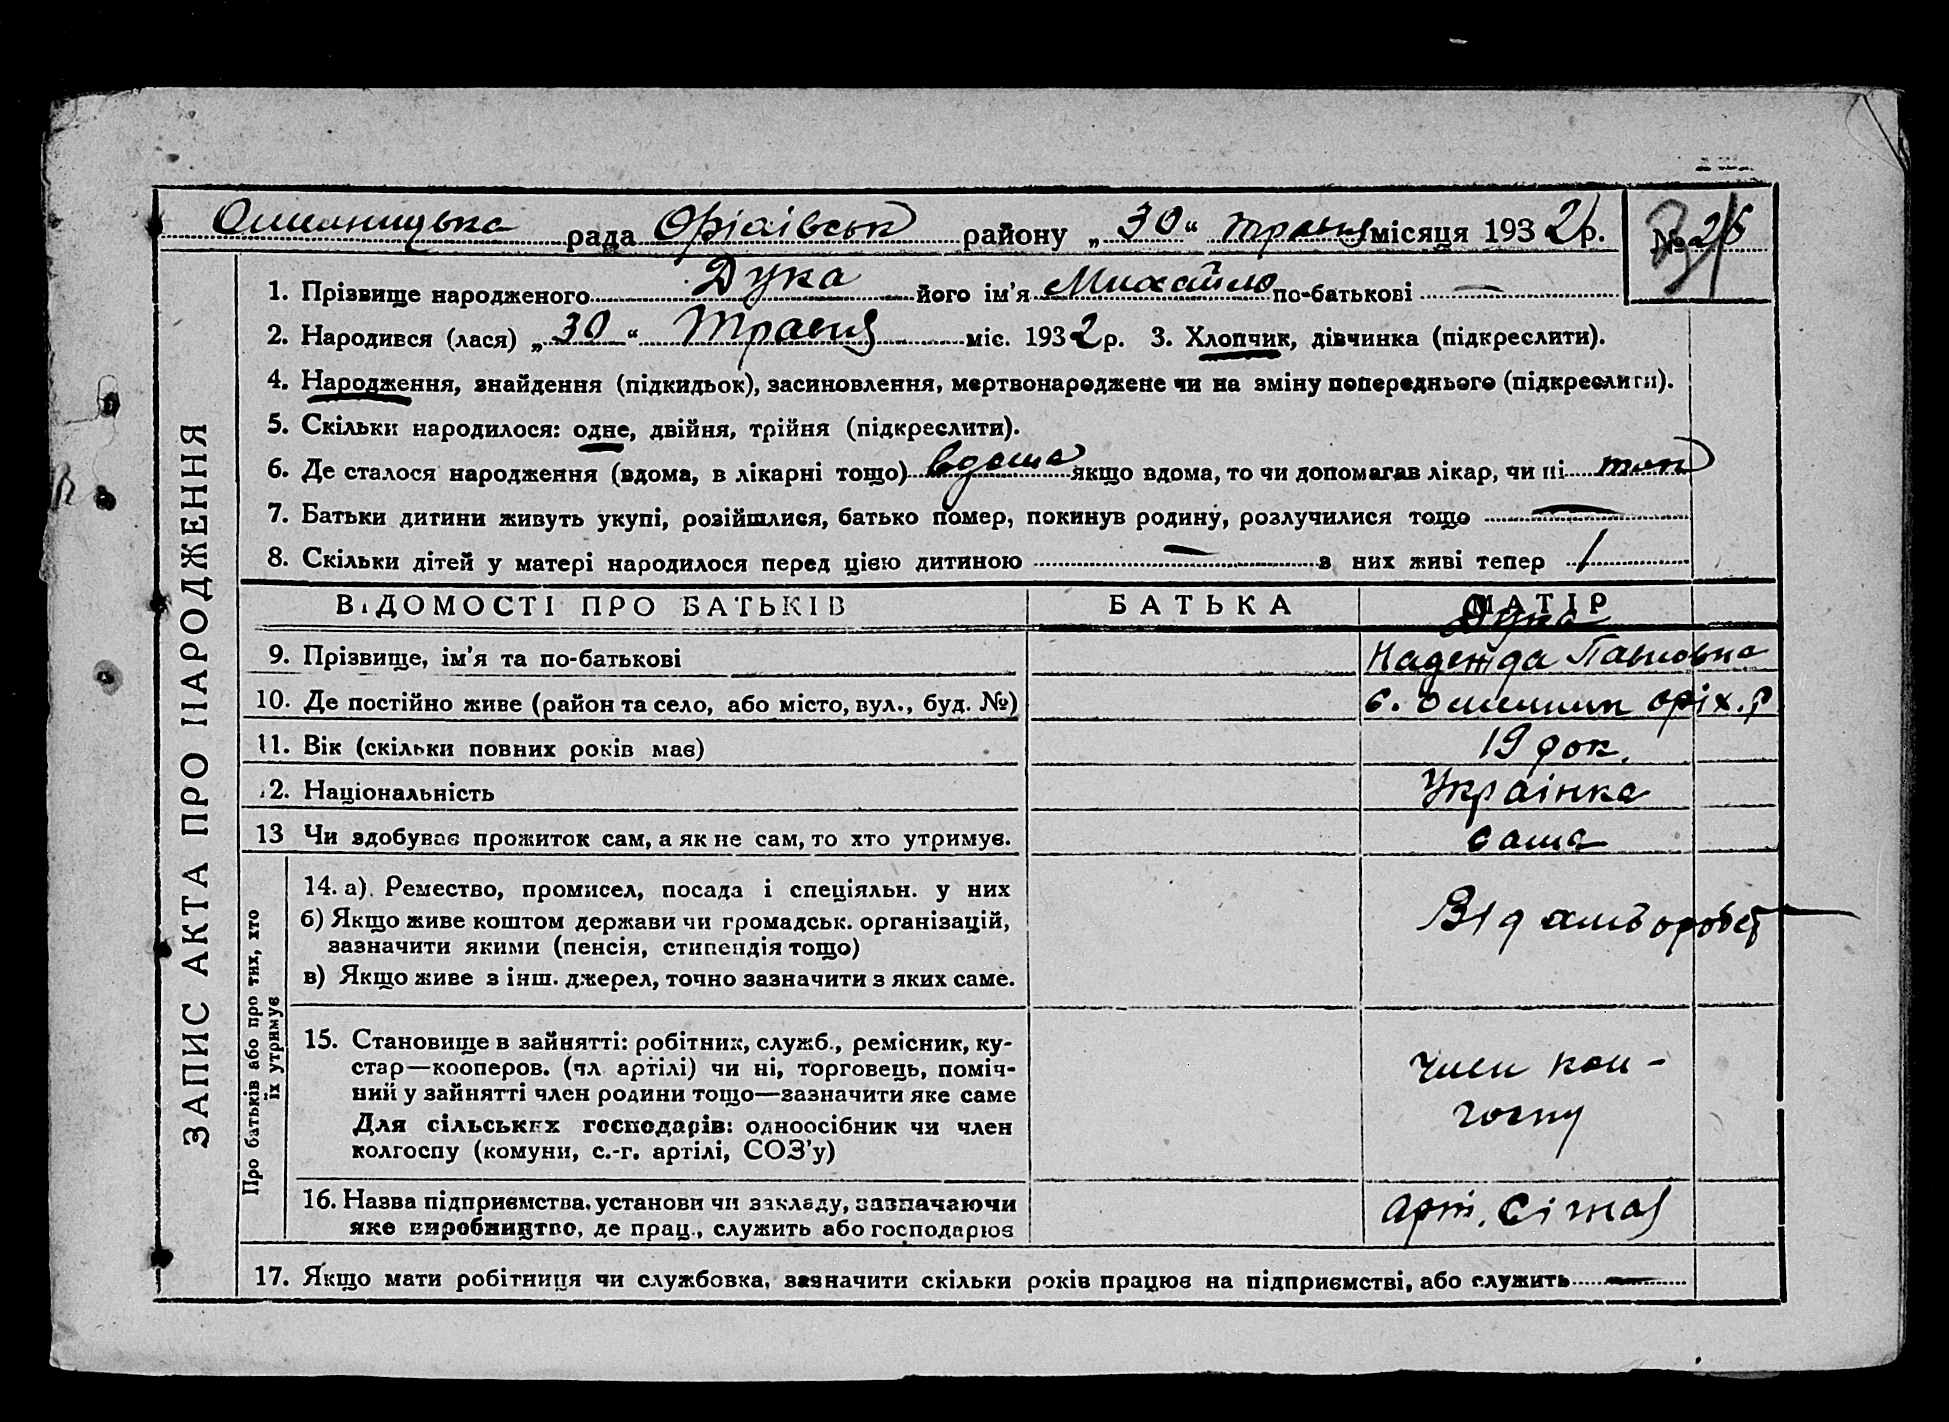 Омельницька рада Оріхівськ району „30“ травня місяця 1932 р. № 26
31
ЗАПИС АКТА ПРО НАРОДЖЕННЯ
1. Прізвище народженого Дука його ім'я Михайло по-батькові —
2. Народився (лася) „30“ Травня міс. 1932 р. 3. Хлопчик, дівчинка (підкреслити).
4. Народження, знайдення (підкидьок), засиновлення, мертвонароджене чи на зміну попереднього (підкреслити).
5. Скільки народилося: одне, двійня, трійня (підкреслити).
6. Де сталося народження (вдома, в лікарні тощо) вдома якщо вдома, то чи допомагав лікар, чи ні
7. Батьки дитини живуть укупі, розійшлися, батько помер, покинув родину, розлучилися тощо —
8. Скільки дітей у матері народилося перед цією дитиною — з них живі тепер 1
ВІДОМОСТІ ПРО БАТЬКІВ БАТЬКА МАТІР
Дука
9. Прізвище, ім'я та по-батькові Надежда Павловна
10. Де постійно живе (район та село, або місто, вул., буд. №) с. Омельник оріх. р
11. Вік (скільки повних років має) 19 рок.
12. Національність Украінка
13 Чи здобуває прожиток сам, а як не сам, то хто утримує. сама
Про батьків або про тих, хто їх утримує
14. а). Ремество, промисел, посада і спеціяльн. у них
б) Якщо живе коштом держави чи громадськ. організацій,
зазначити якими (пенсія, стипендія тощо)
в) Якщо живе з інш. джерел, точно зазначити з яких саме.
Від
15. Становище в зайнятті: робітник, служб., ремісник, ку-
стар—кооперов. (чл артілі) чи ні, торговець, поміч-
ний у зайнятті член родини тощо—зазначити яке саме
Для сільських господарів: одноосібник чи член
колгоспу (комуни, с.-г. артілі, СОЗ'у)
член кол-
госпу
16. Назва підприємства, установи чи закладу, зазначаючи
яке виробництво, де прац., служить або господарює
арт.
17. Якщо мати робітниця чи службовка, зазначити скільки років працює на підприємстві, або служить —